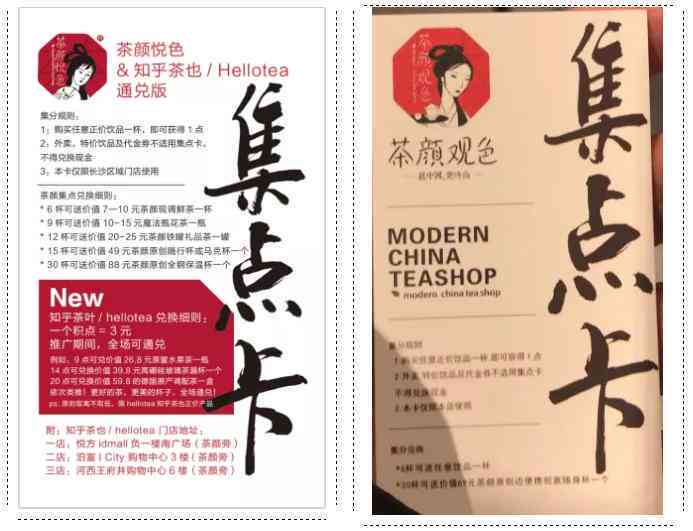 茶颜悦色
茶颜悦色
& 知乎茶也 / Hellotea
通兑版
集点卡
集分规则：
1：购买任意正价饮品一杯，即可获得 1 点
2：外卖，特价饮品及代金券不适用集点卡，
不得兑换现金
3：本卡仅限长沙区域门店使用
茶颜集点兑换细则：
* 6 杯可送价值 7—10 元茶颜现调鲜茶一杯
* 9 杯可送价值 10-15 元魔法瓶花茶一瓶
* 12 杯可送价值 20-25 元茶颜铁罐礼品茶一罐
* 15 杯可送价值 49 元茶颜原创随行杯或马克杯一个
* 30 杯可送价值 88 元茶颜原创全钢保温杯一个
New
知乎茶叶 / hellotea 兑换细则：
一个积点 = 3 元
推广期间，全场可通兑
例如，9 点可兑价值 26.8 元原窨水果茶一瓶
14 点可兑换价值 39.8 元高硼硅玻璃茶漏杯一个
20 点可兑换价值 59.8 的德国原产调配茶一盒
依次类推！更好的茶，更美的杯子，全场通兑！
hellotea 知乎茶也正价产品
附：知乎茶也 / hellotea 门店地址：
一店：悦方 idmall 负一楼南广场（茶颜旁）
二店：泊富 I City 购物中心 3 楼（茶颜旁）
三店：河西王府井购物中心 6 楼（茶颜旁）
茶颜观色
茶颜观色
集点卡
MODERN
CHINA
TEASHOP
modern china tea shop
集分规则
1 购买任意正价饮品一杯 即可获得 1 点
2 外卖 特价饮品及代金券不适用集点卡
不得兑换现金
3 本卡仅限本店使用
集分兑换
*6杯可送任意饮品一杯